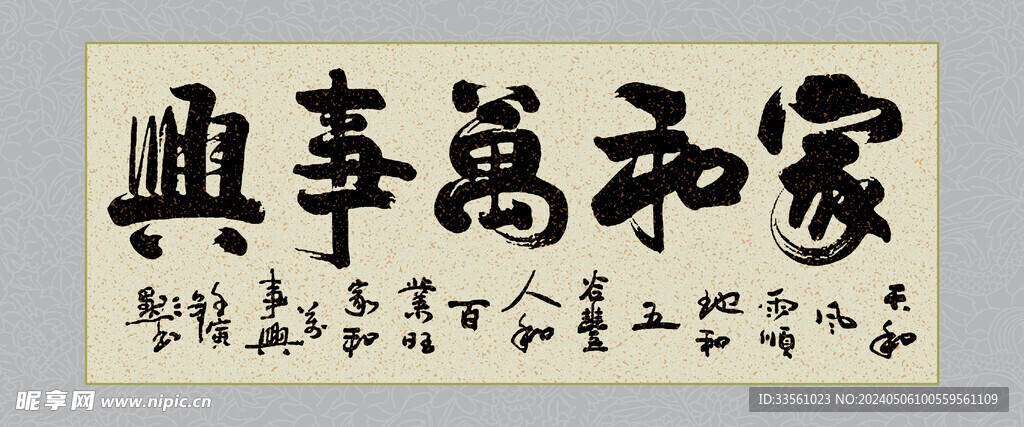 家和萬事興
天和
風
雨順
地和
五
谷豐
人和
百
業旺
家和
萬
事興
壬寅
昵享网 www.nipic.cn
ID:33561023 NO:20240506100559561109